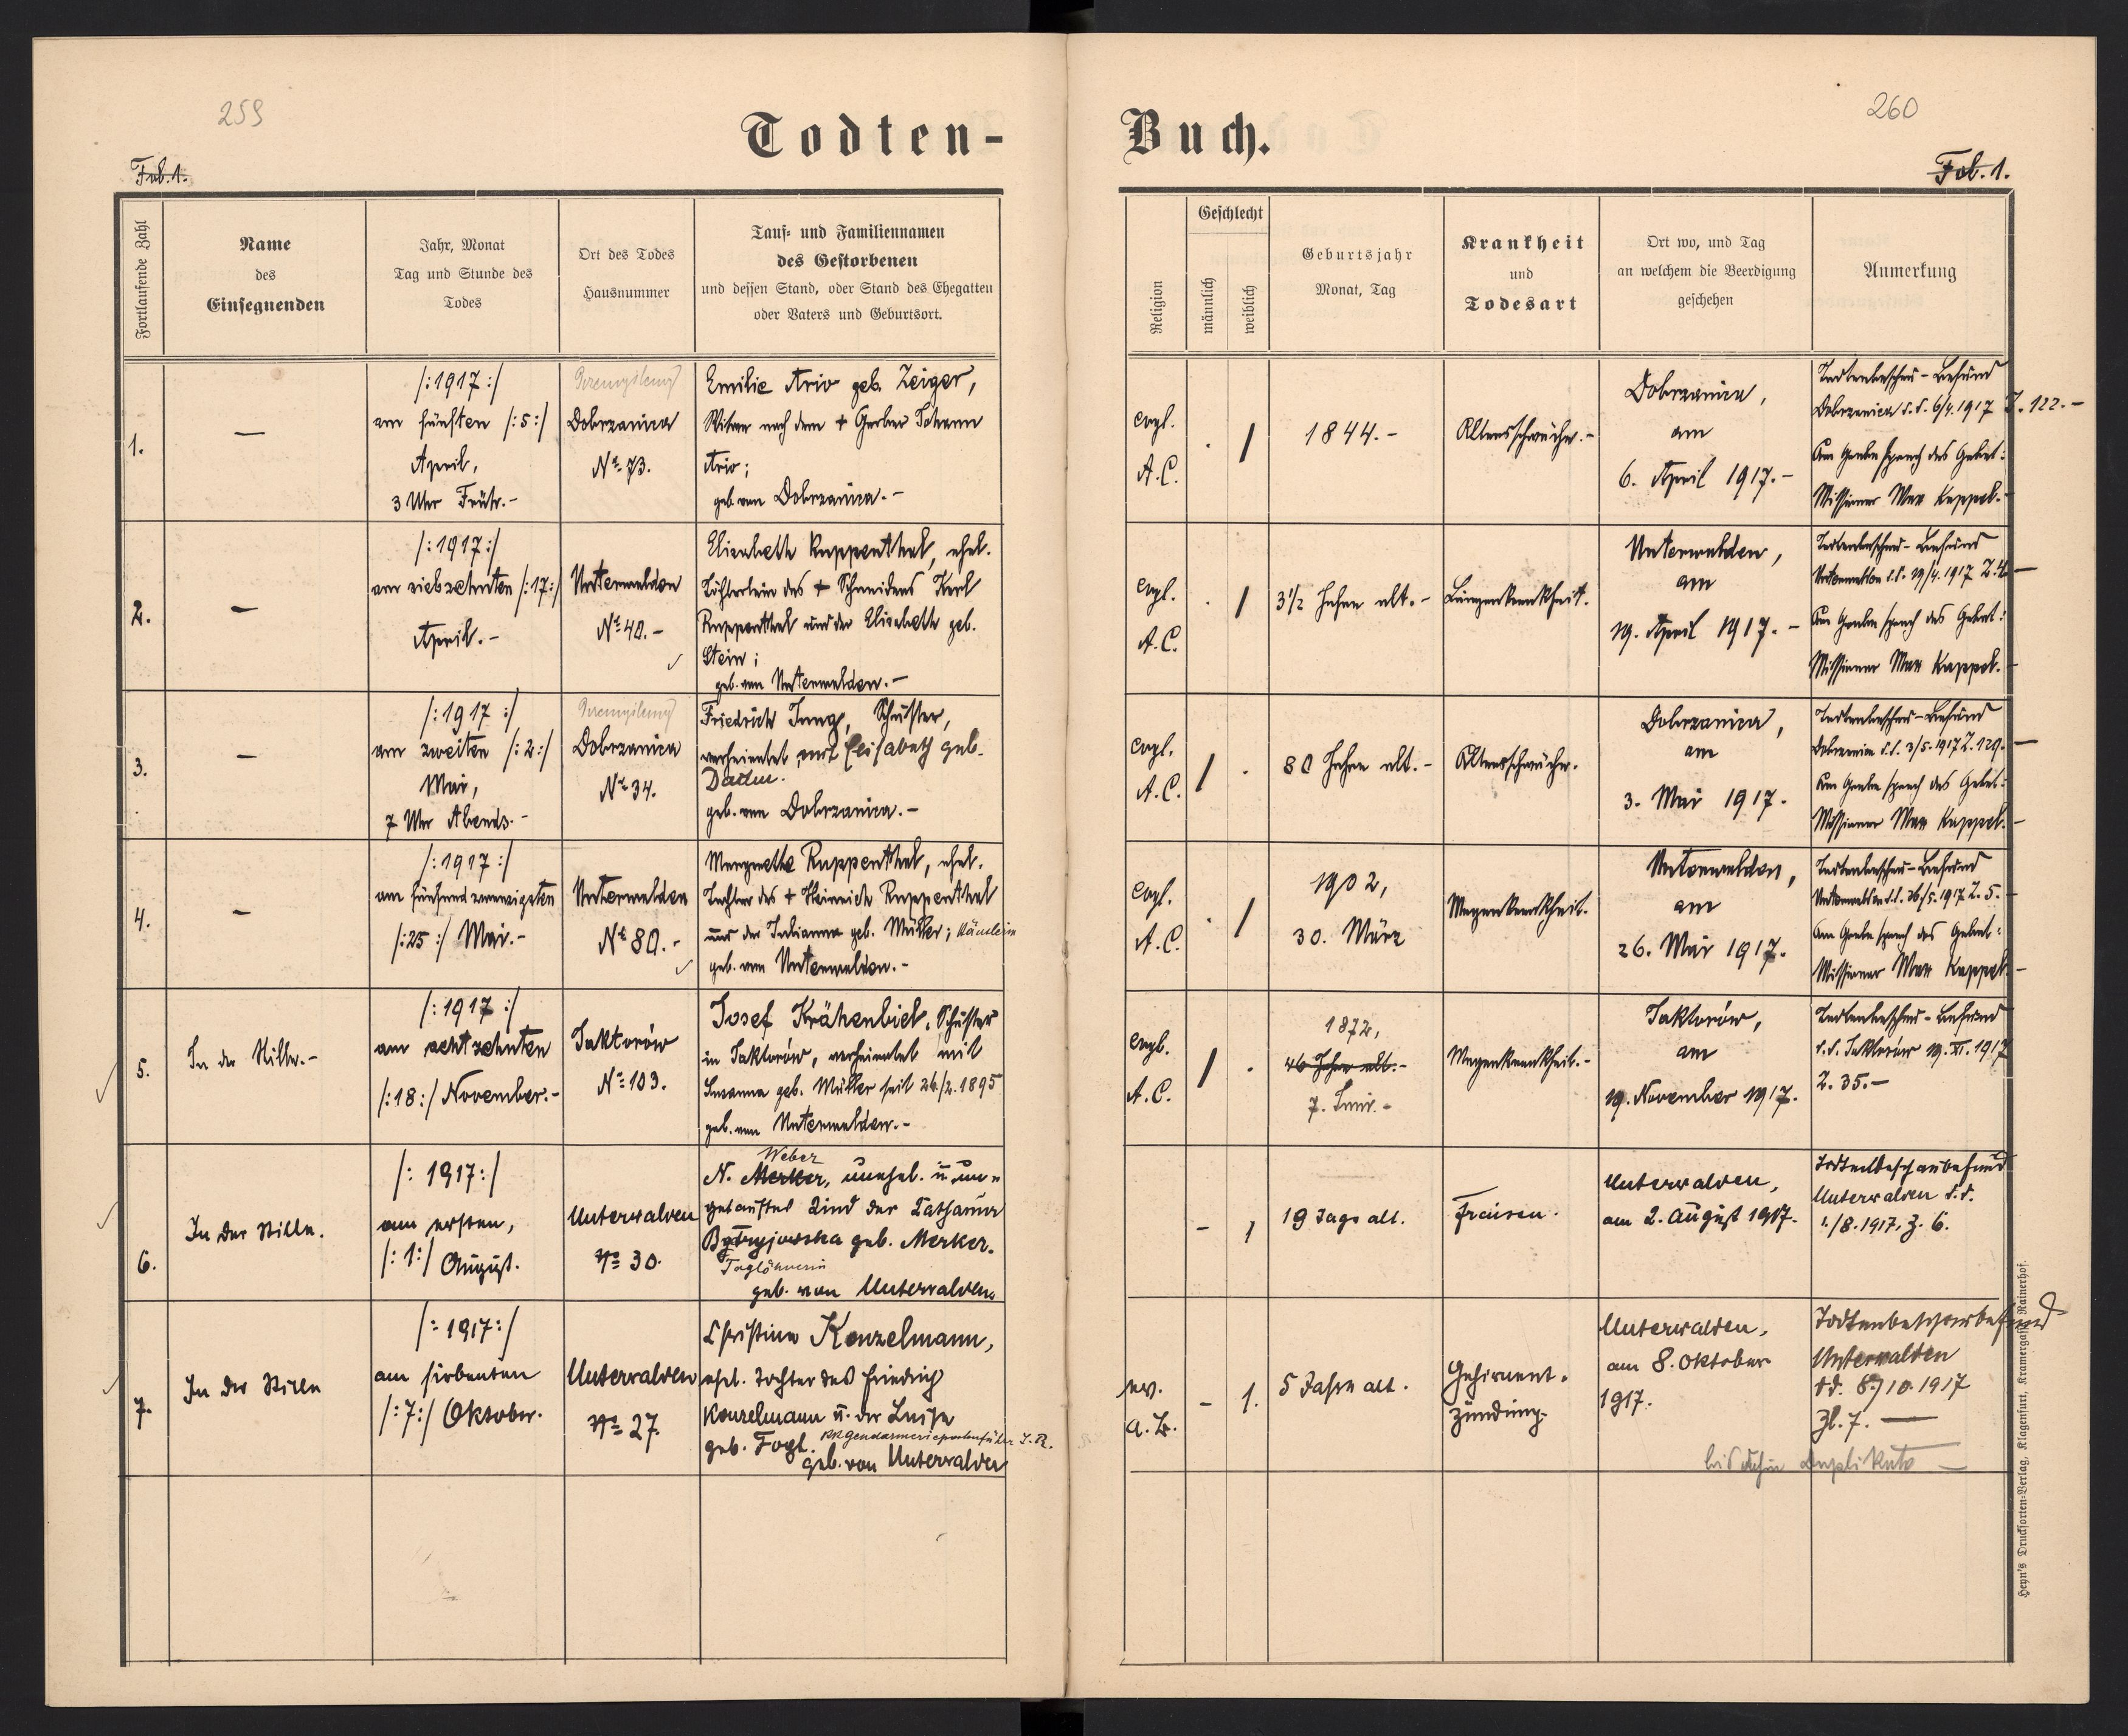 259
Todten-
Fol. 1.
Fortlaufende Zahl
Name
des
Einsegnenden
Jahr, Monat
Tag und Stunde des
Todes
Ort des Todes
Hausnummer
Tauf= und Familiennamen
des Gestorbenen
und dessen Stand, oder Stand des Ehegatten
oder Vaters und Geburtsort.
1.
—
/:1917:/
am fünften /:5:/
April,
3 Uhr Früh.-
Dobrzanica
No 73.
Emilie Ariv geb. Zeiger,
Witwe nach dem + Gerber Johann
Ariv;
geb. von Dobrzanica.-
2.
—
/:1917:/
am siebzehnten /:17:/
April.-
Unterwalden
No 40.-
Elisabeth Ruppenthal, ehel.
Töchterlein des + Schneiders Karl
Ruppenthal und der Elisabeth geb.
Stein;
geb. von Unterwalden.-
3.
—
/:1917:/
am zweiten /:2:/
Mai,
7 Uhr Abends.-
Dobrzanica
No 34.
Friedrich Jung, Schuster,
verheiratet mit Elisabeth geb.
geb. von Dobrzanica.-
4.
—
/:1917:/
am fünfundzwanzigsten
/:25:/ Mai.-
Unterwalden
No 80.-
Margarethe Ruppenthal, ehel.
Tochter des + Heinrich Ruppenthal
und der Julianna geb. Müller; Häuslerin
geb. von Unterwalden.-
5.
In der Stille.-
/:1917:/
am achtzehnten
/:18:/ November.-
Jaktorów
No 103.
Josef Krähenbiel, Schuster
in Jaktorów, verheiratet mit
Susanna geb. Müller seit 26./2.1895
geb. von Unterwalden.-
6.
In der Stille.
/:1917:/
am ersten,
/:1:/ August.
Unterwalden
No 30.
Weber
N. Merker, unehel. u. un=
getauftes Kind der Katharina
geb. Merker.
Taglöhnerin
geb. von Unterwalden.
7.
In der Stille
/:1917:/
am siebenten
/:7:/ Oktober.
Unterwalden
No 27.
Christine Konzelmann,
ehel. Tochter des Friedrich
Konzelmann u. der Luise
geb. Fogl. KK Gendarmeriepostenführer I.R.
geb. von Unterwalden
260
Buch.
Fol. 1.
Religion
Geschlecht
männlich
weiblich
Geburtsjahr
Monat, Tag
Krankheit
und
Todesart
Ort wo, und Tag
an welchem die Beerdigung
geschehen
Anmerkung
evgl.
A.C.
. /
1844.-
Altersschwäche.-
Dobrzanica,
am
6. April 1917.-
Todtenbeschau-Befund
Dobrzanica d.d. 6/4.1917 Z. 122.-
Am Grabe sprach das Gebet:
Missionar Max Kappel.-
evgl.
A.C.
. /
3½ Jahre alt.-
Lungenkrankheit.
Unterwalden,
am
19. April 1917.-
Todtenbeschau-Befund
Unterwalden d.d. 19/4.1917 Z.4.-
Am Grabe sprach das Gebet:
Missionar Max Kappel.-
evgl.
A.C.
/ .
80 Jahre alt.-
Altersschwäche.
Dobrzanica,
am
3. Mai 1917.
Todtenbeschau-Befund
Dobrzanica d.d. 3/5.1917 Z.129.-
Am Grabe sprach das Gebet:
Missionar Max Kappel.-
evgl.
A.C.
. /
1902,
30. März
Magenkrankheit.
Unterwalden,
am
26. Mai 1917.
Todtenbeschau-Befund
Unterwalden d.d. 26/5.1917 Z.5.-
Am Grabe sprach das Gebet:
Missionar Max Kappel.-
evgl.
A.C.
/ .
1872,
46 Jahre alt.-
7. Juni.-
Magenkrankheit.-
Jaktorów,
am
19. November 1917.
Todtenbeschau-Befund
d.d. Jaktorów 19.XI.1917
Z. 35.-
- 1
19 Tage alt.
Fraisen.
Unterwalden,
am 2. August 1917.
Todtenbeschaubefund
Unterwalden d.d.
1./8.1917, Z. 6.
ev.
A.B.
- 1.
5 Jahre alt.
Gehirnent=
zündung.
Unterwalden,
am 8. Oktober
1917.
Todtenbeschaubefund
Unterwalden
dd. 8./10.1917
Zl. 7. —
bis dahin Duplikate —
Heyn's Drucksorten=Verlag, Klagenfurt, Kramergasse Rainerhof.